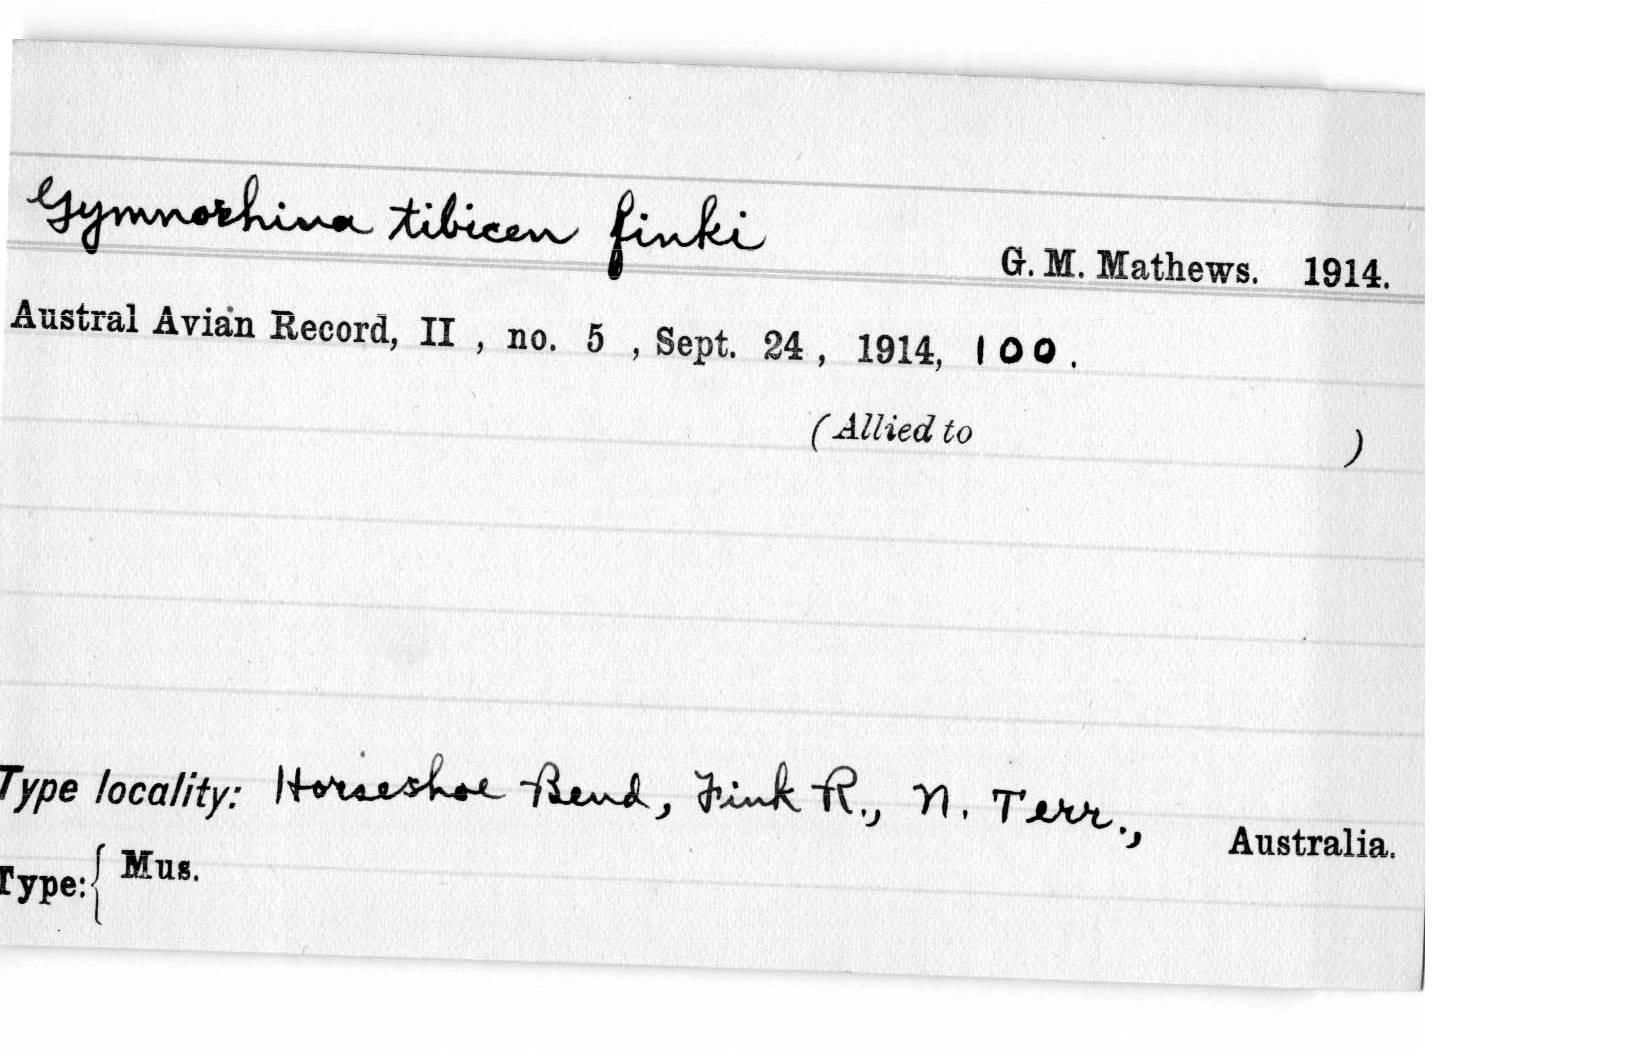 Gymnorhina tibicen finki
G. M. Mathews. 1914.
Austral Avian Record, II , no. 5 , Sept. 24 , 1914, 100.
(Allied to )
Type locality: Horseshoe Bend, Fink R., N. Terr., Australia.
Type: { Mus.